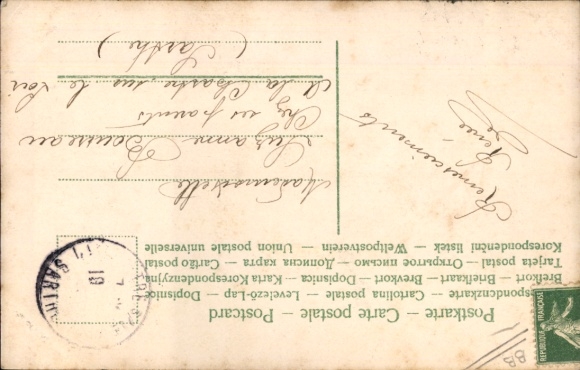 Postkarte — Carte postale — Postcard
Korespondenzkarte — Cartolina postale — Levelező-Lap — Dopisnice
Brefkort — Briefkaart — Brevkort — Dopisnica — Karta Korespondencyjna
Tarjeta postal — Открытое письмо — Дописна карта — Cartão postal
Korespondenční listek — Weltpostverein — Union postale universelle
Mademoiselle
Suzanne
Chez ses parents
A la Chartre sur le Loir
(Sarthe)
Remerciements
Renée
SARTHE
19
REPUBLIQUE FRANÇAISE
BB